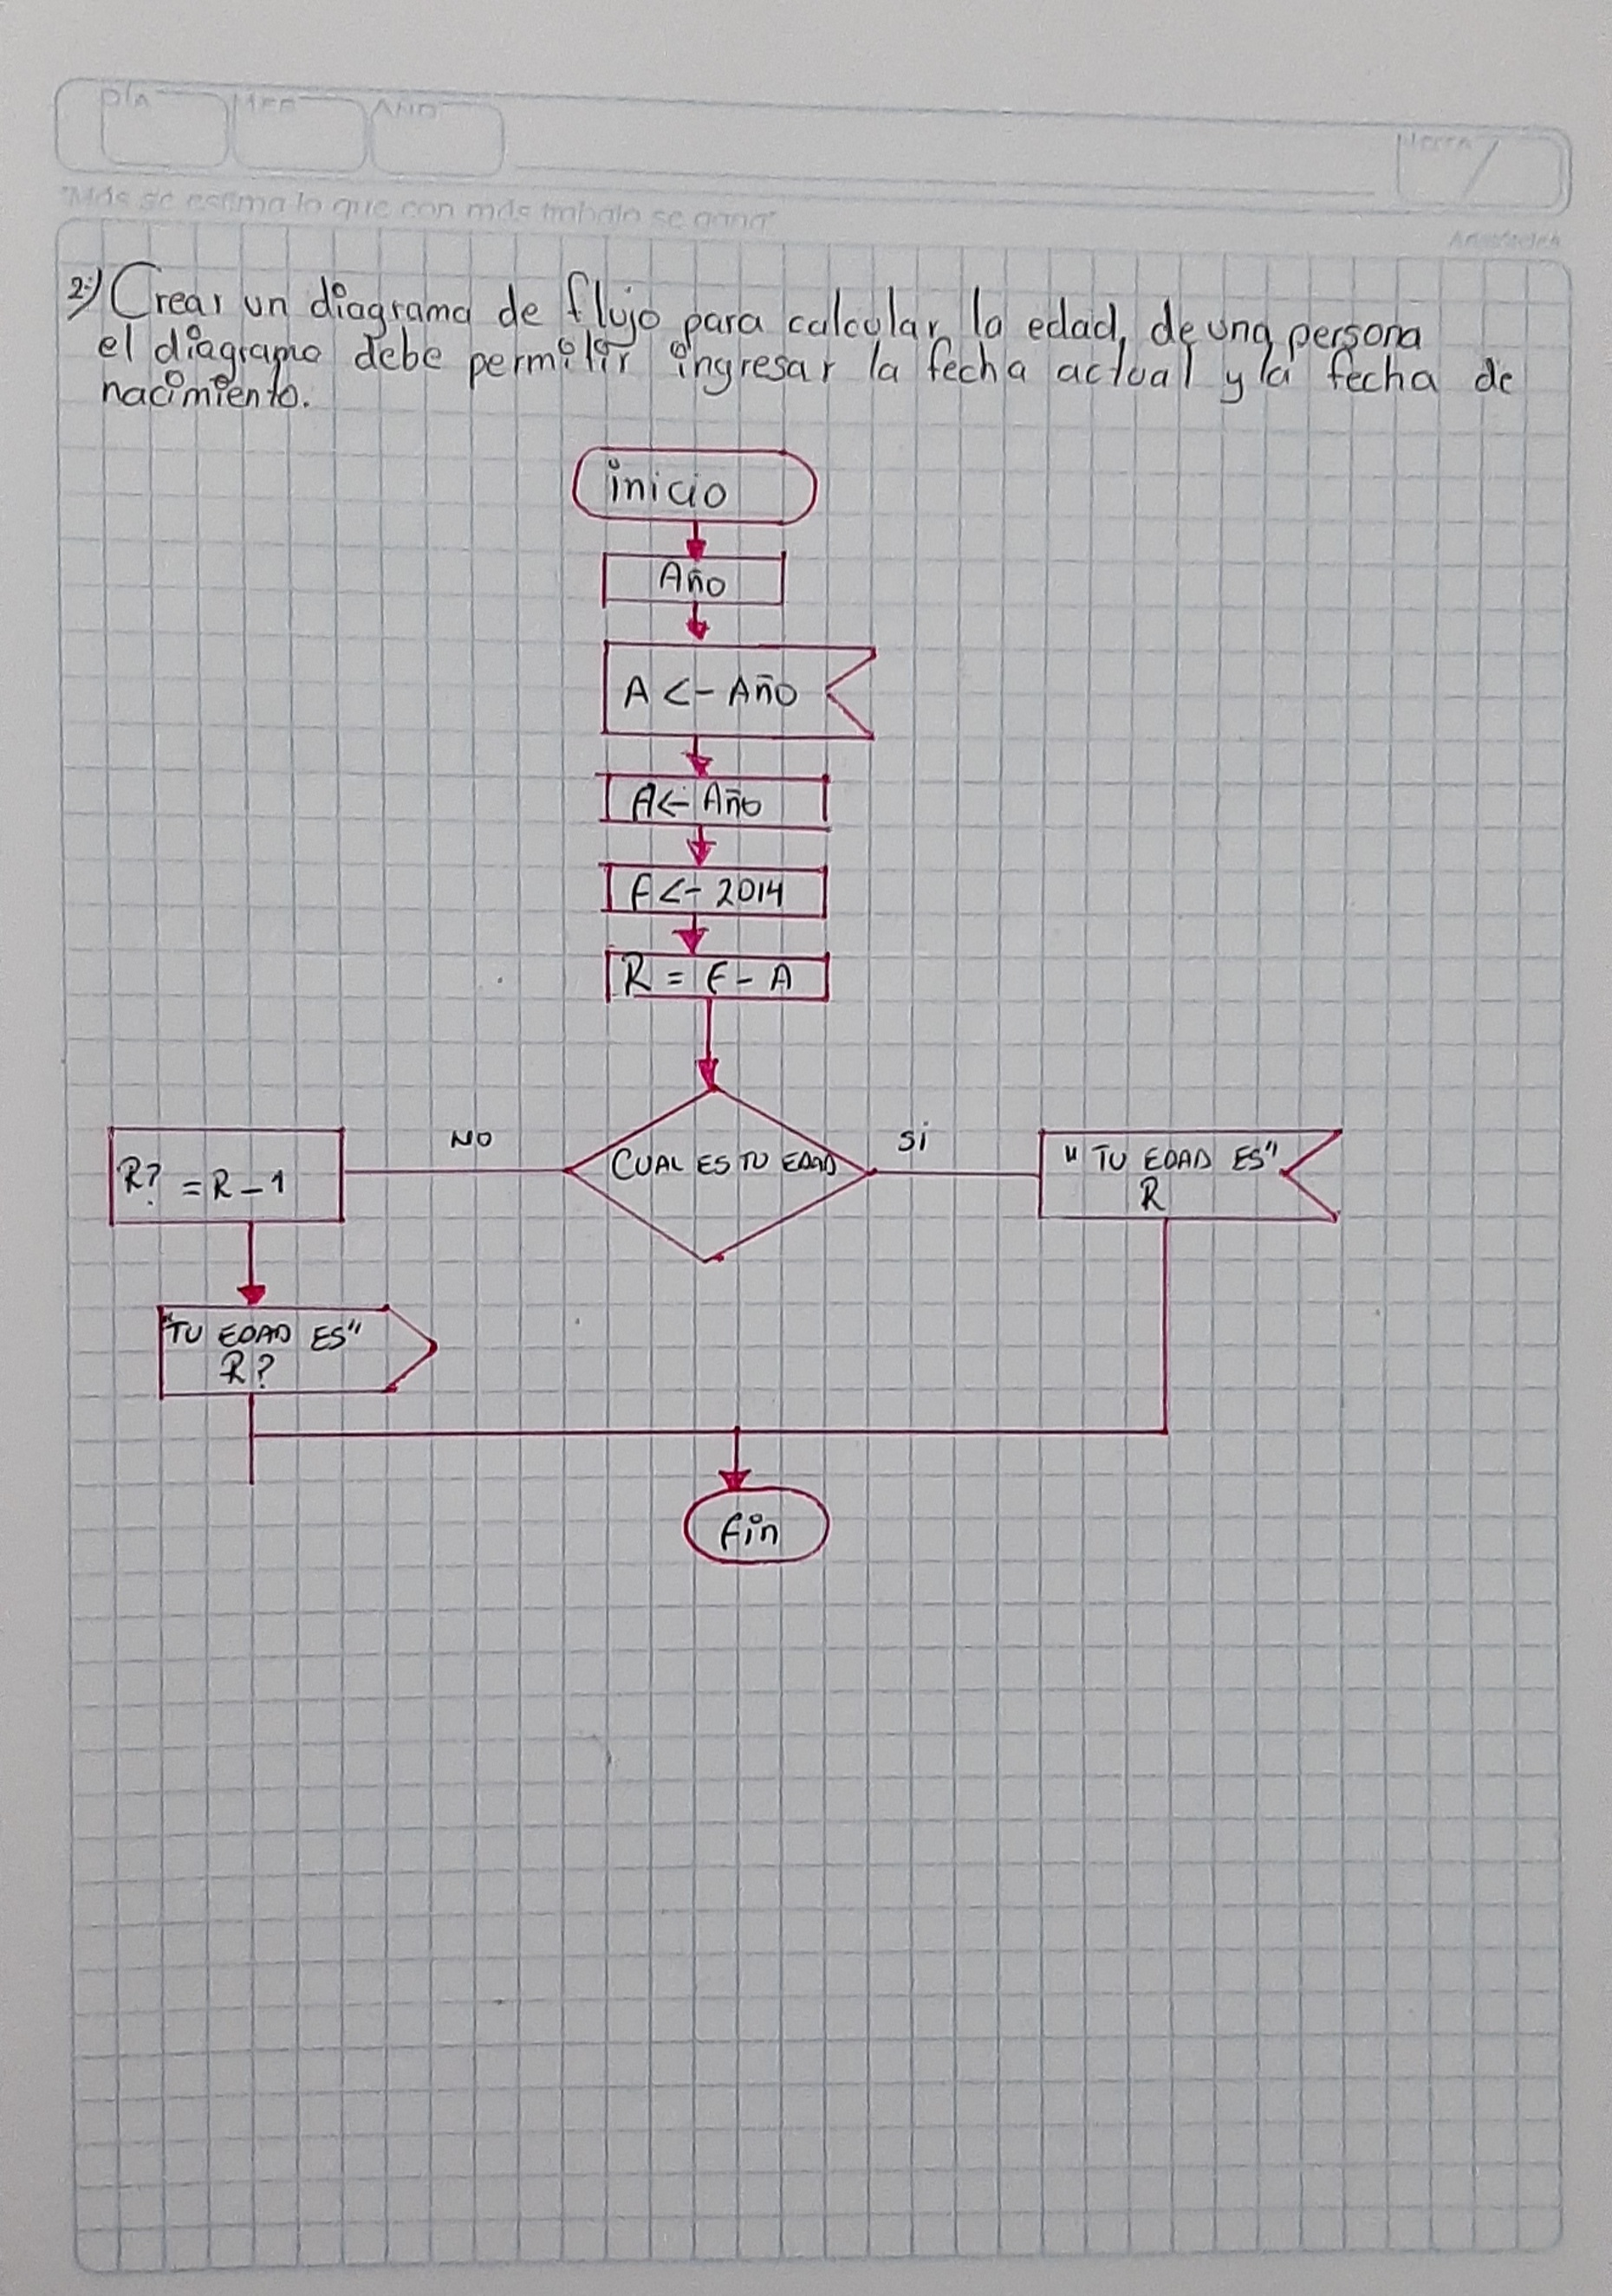 DÍA MES AÑO
"Más se estima lo que con más trabajo se gana"
2:) Crear un diagrama de flujo para calcular la edad, de una persona
el diagrama debe permitir ingresar la fecha actual y la fecha de
nacimiento.
inicio
Año
A <- Año
A <- Año
F <- 2014
R = F - A
NO
CUAL ES TU EDAD
Si
R? = R - 1
" TU EDAD ES"
R
"TU EDAD ES"
R?
fin